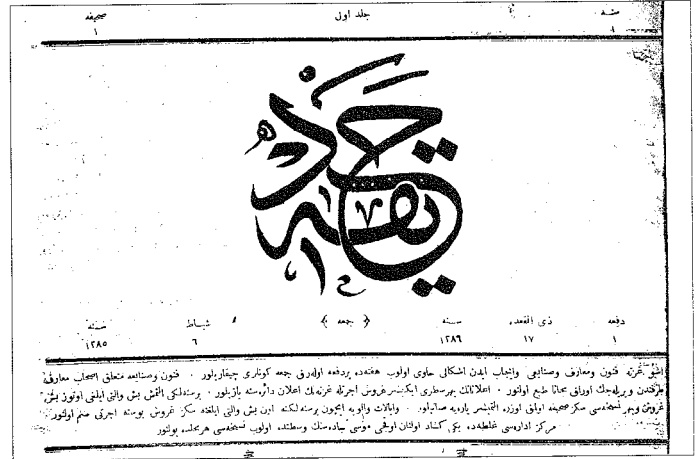 سنه
١
جلد اول
صحيفه
١
دفعه
١
ذی القعده
١٧
سنه
١٢٨٦
﴿ جمعه ﴾
شباط
٦
سنه
١٢٨٥
اشبو غزته فنون ومعارف وصنايعی وايجاب ايدن اشكالی حاوی اولوب هفتەده بردفعه اولەرق جمعه كونلری چيقاريلور · فنون وصنايعه متعلق اصحاب معارف
طرفندن ويريلەجك اوراق مجانا طبع اولنور · اعلاناتك بهر سطری ايكيشر غروش اجرتله غزتەنك اعلان دائرەسنه يازيلور · برسنەلكی التمش بش والتی ايلغی اوتوز بش
غروش وبهر نسخەسی سكز صحيفه اولق اوزره التمشر پارەيه صاتيلور · وايالات والويه ايچون برسنەلكنه اون بش والتی ايلغنه سكز غروش پوسته اجرتی ضم اولنور
مركز ادارەسی غلطەده يكی كشاد اولنان اوقجی موسی جادەسنك وسطنده اولوب نسخەسی هر محلده بولنور